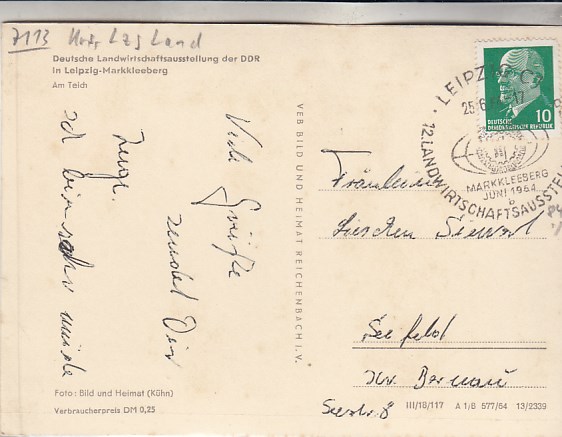 7113
Land
Deutsche Landwirtschaftsausstellung der DDR
in Leipzig-Markkleeberg
Am Teich
Viele Grüße
sendet Dir
Ich bin sehr müde
VEB BILD UND HEIMAT REICHENBACH I. V.
LEIPZIG C
25.6.
12. LANDWIRTSCHAFTSAUSSTEL
MARKKLEEBERG
JUNI 1964
b
10
DEUTSCHE
DEMOKRATISCHE REPUBLIK
Fräulein
Lieschen
Seefeld
Kr. Bernau
Seestr. 8
Foto: Bild und Heimat (Kühn)
Verbraucherpreis DM 0,25
III/18/117 A 1/B 577/64 13/2339